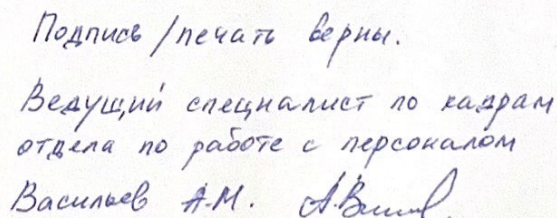 Подпись/печать верны.
Ведущий специалист по кадрам
отдела по работе с персоналом
Васильев А.М.